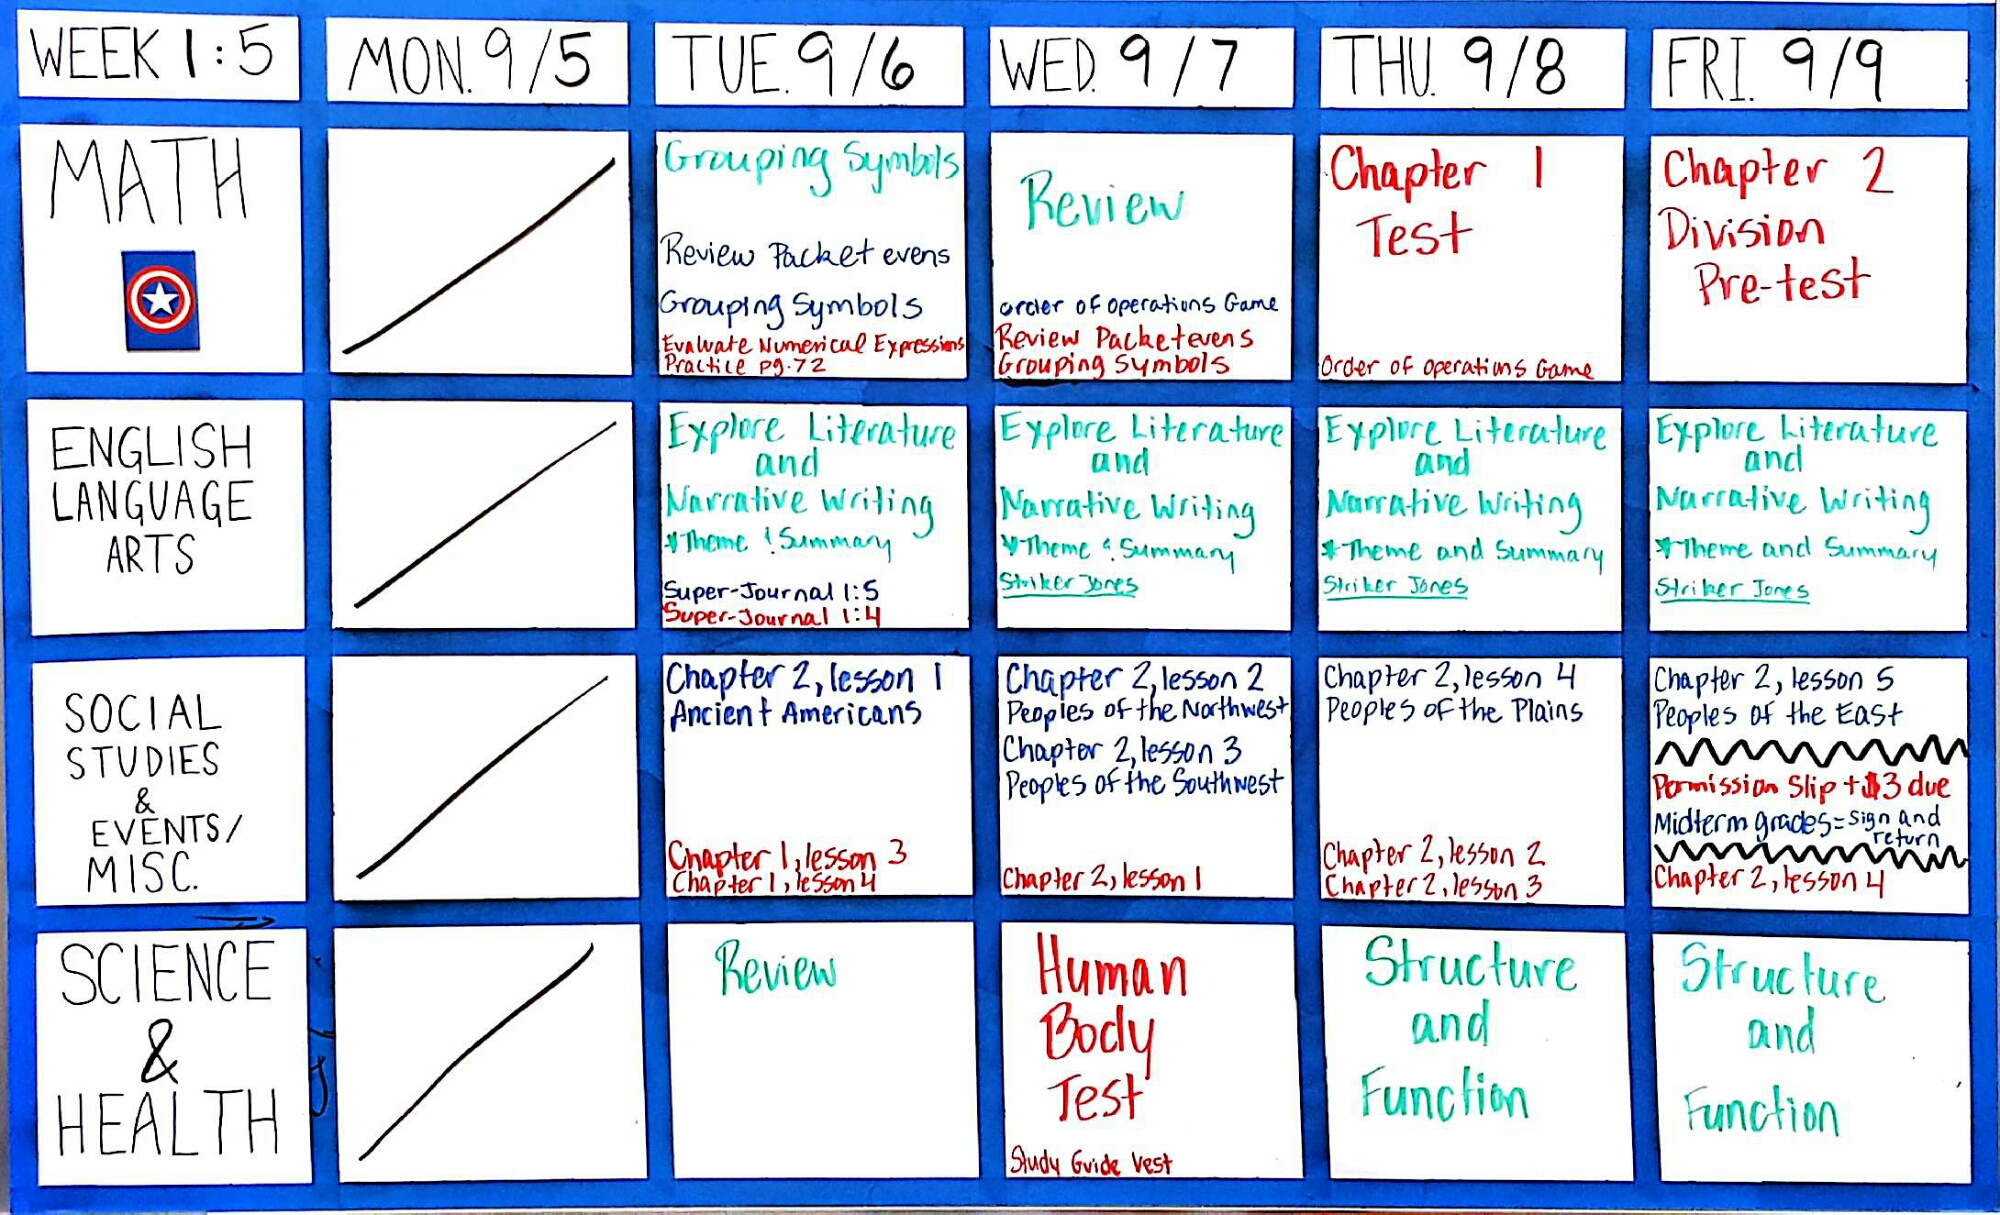 WEEK 1:5
MON. 9/5
TUE. 9/6
WED. 9/7
THU. 9/8
FRI. 9/9
MATH
Grouping Symbols
Review Packet evens
Grouping Symbols
Evaluate Numerical Expressions
Practice pg. 72
Review
order of operations Game
Review Packet evens
Grouping Symbols
Chapter 1
Test
Order of operations Game
Chapter 2
Division
Pre-test
ENGLISH
LANGUAGE
ARTS
Explore Literature
and
Narrative Writing
*Theme & Summary
Super-Journal 1:5
Super-Journal 1:4
Explore Literature
and
Narrative Writing
*Theme & Summary
Striker Jones
Explore Literature
and
Narrative Writing
*Theme and Summary
Striker Jones
Explore Literature
and
Narrative Writing
*Theme and Summary
Striker Jones
SOCIAL
STUDIES
&
EVENTS/
MISC.
Chapter 2, lesson 1
Ancient Americans
Chapter 1, lesson 3
Chapter 1, lesson 4
Chapter 2, lesson 2
Peoples of the Northwest
Chapter 2, lesson 3
Peoples of the Southwest
Chapter 2, lesson 1
Chapter 2, lesson 4
Peoples of the Plains
Chapter 2, lesson 2
Chapter 2, lesson 3
Chapter 2, lesson 5
Peoples of the East
Permission Slip + $3 due
Midterm grades = sign and
return
Chapter 2, lesson 4
SCIENCE
&
HEALTH
Review
Human
Body
Test
Study Guide Vest
Structure
and
Function
Structure
and
Function